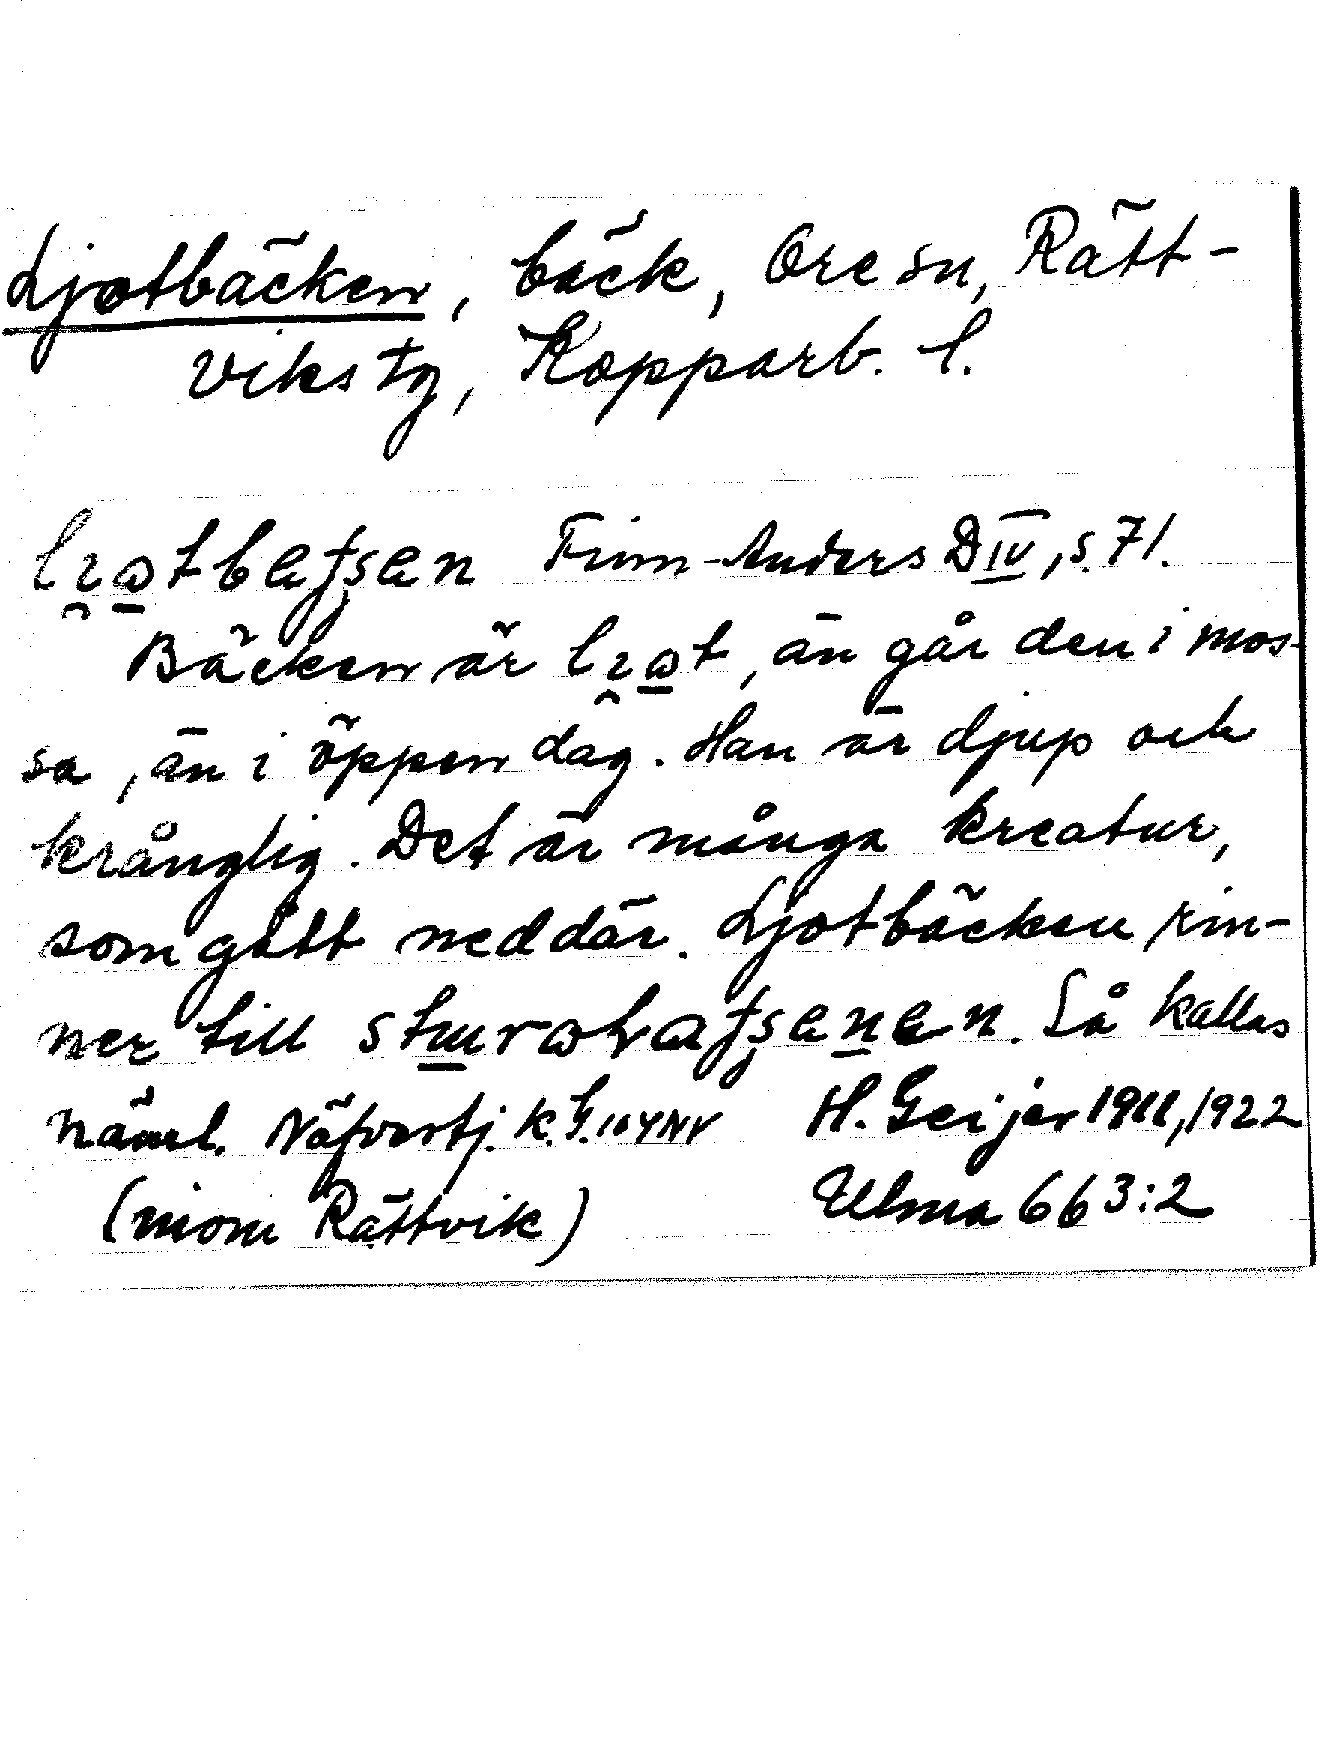 Ljotbäcken, bäck, Ore sn, Rätt-
viks tg, Kopparb. l.
Finn-Anders D IV, s. 71.
Bäcken är, än går den i mos-
sa, än i öppen dag. Han är djup och
krånglig. Det är många kreatur,
som gått ned där. Ljotbäcken rin-
ner till. Så kallas
näml. Näfvertj. H. Geijer 1911, 1922
(inom Rättvik) Ulma 663:2